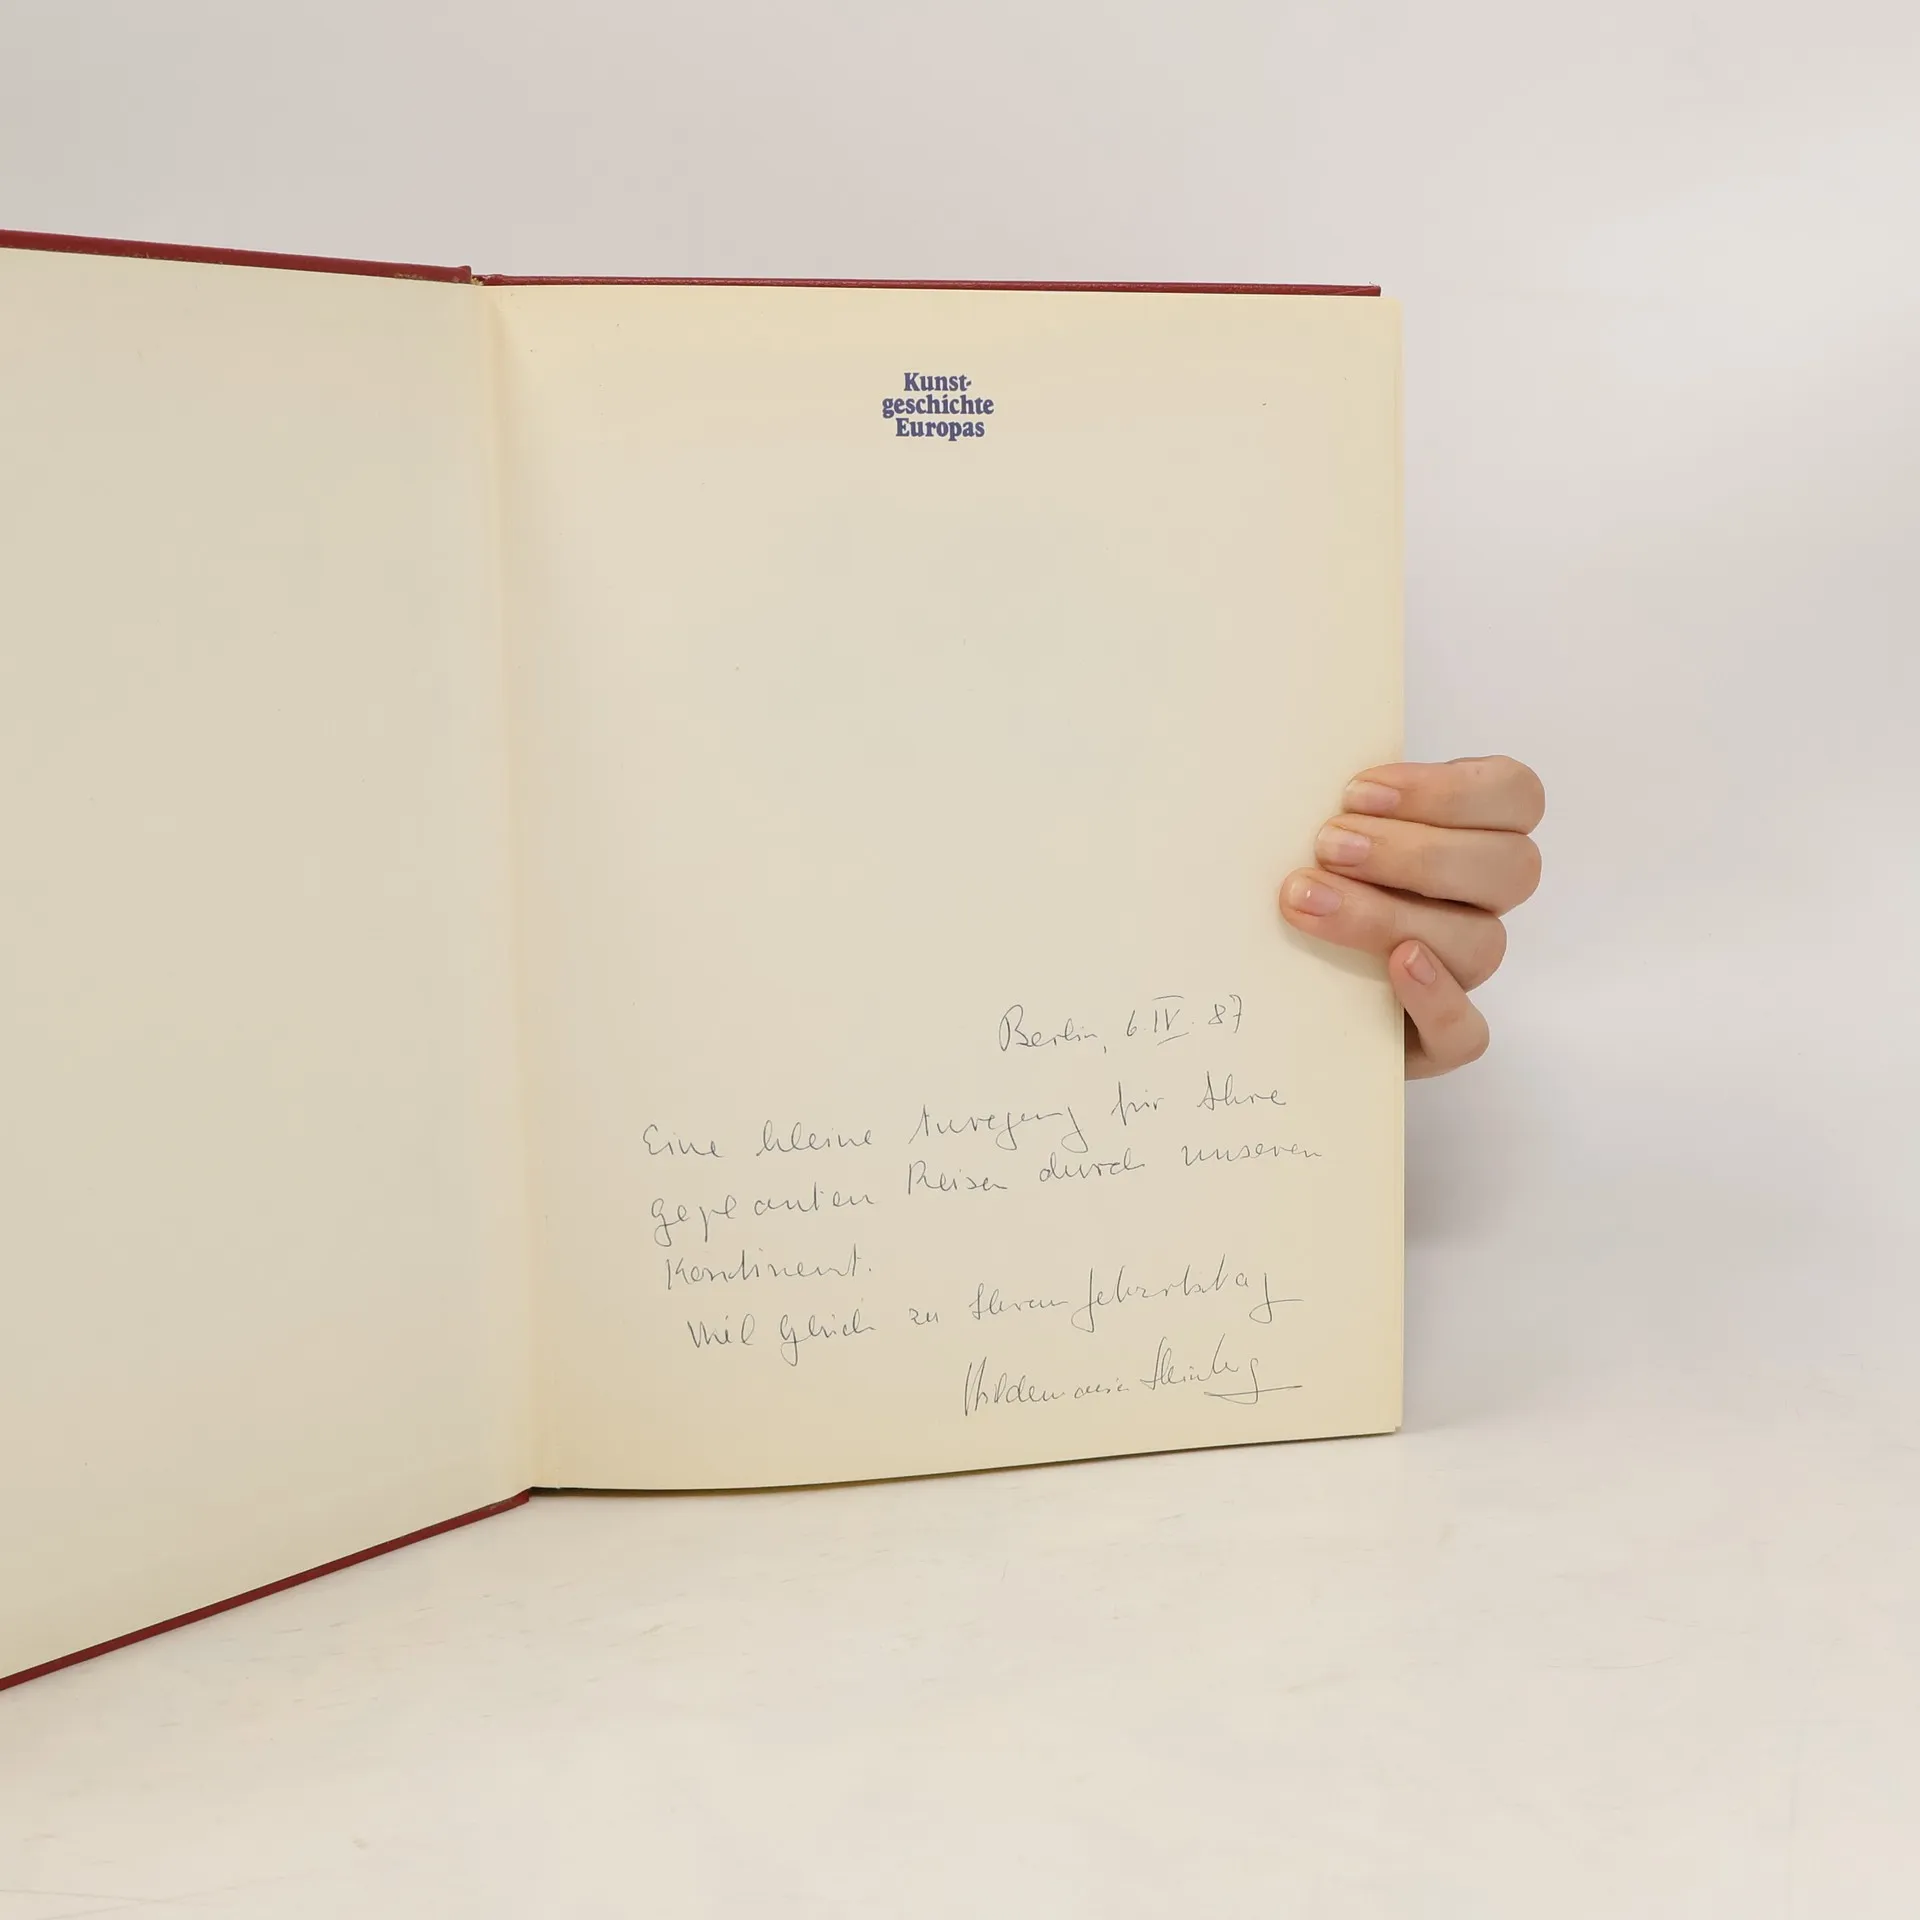 Kunst-
geschichte
Europas
Berlin, 6. IV. 87
Eine kleine Anregung für Ihre
geplanten Reisen durch unseren
Kontinent.
Viel Glück zu Ihrem Geburtstag